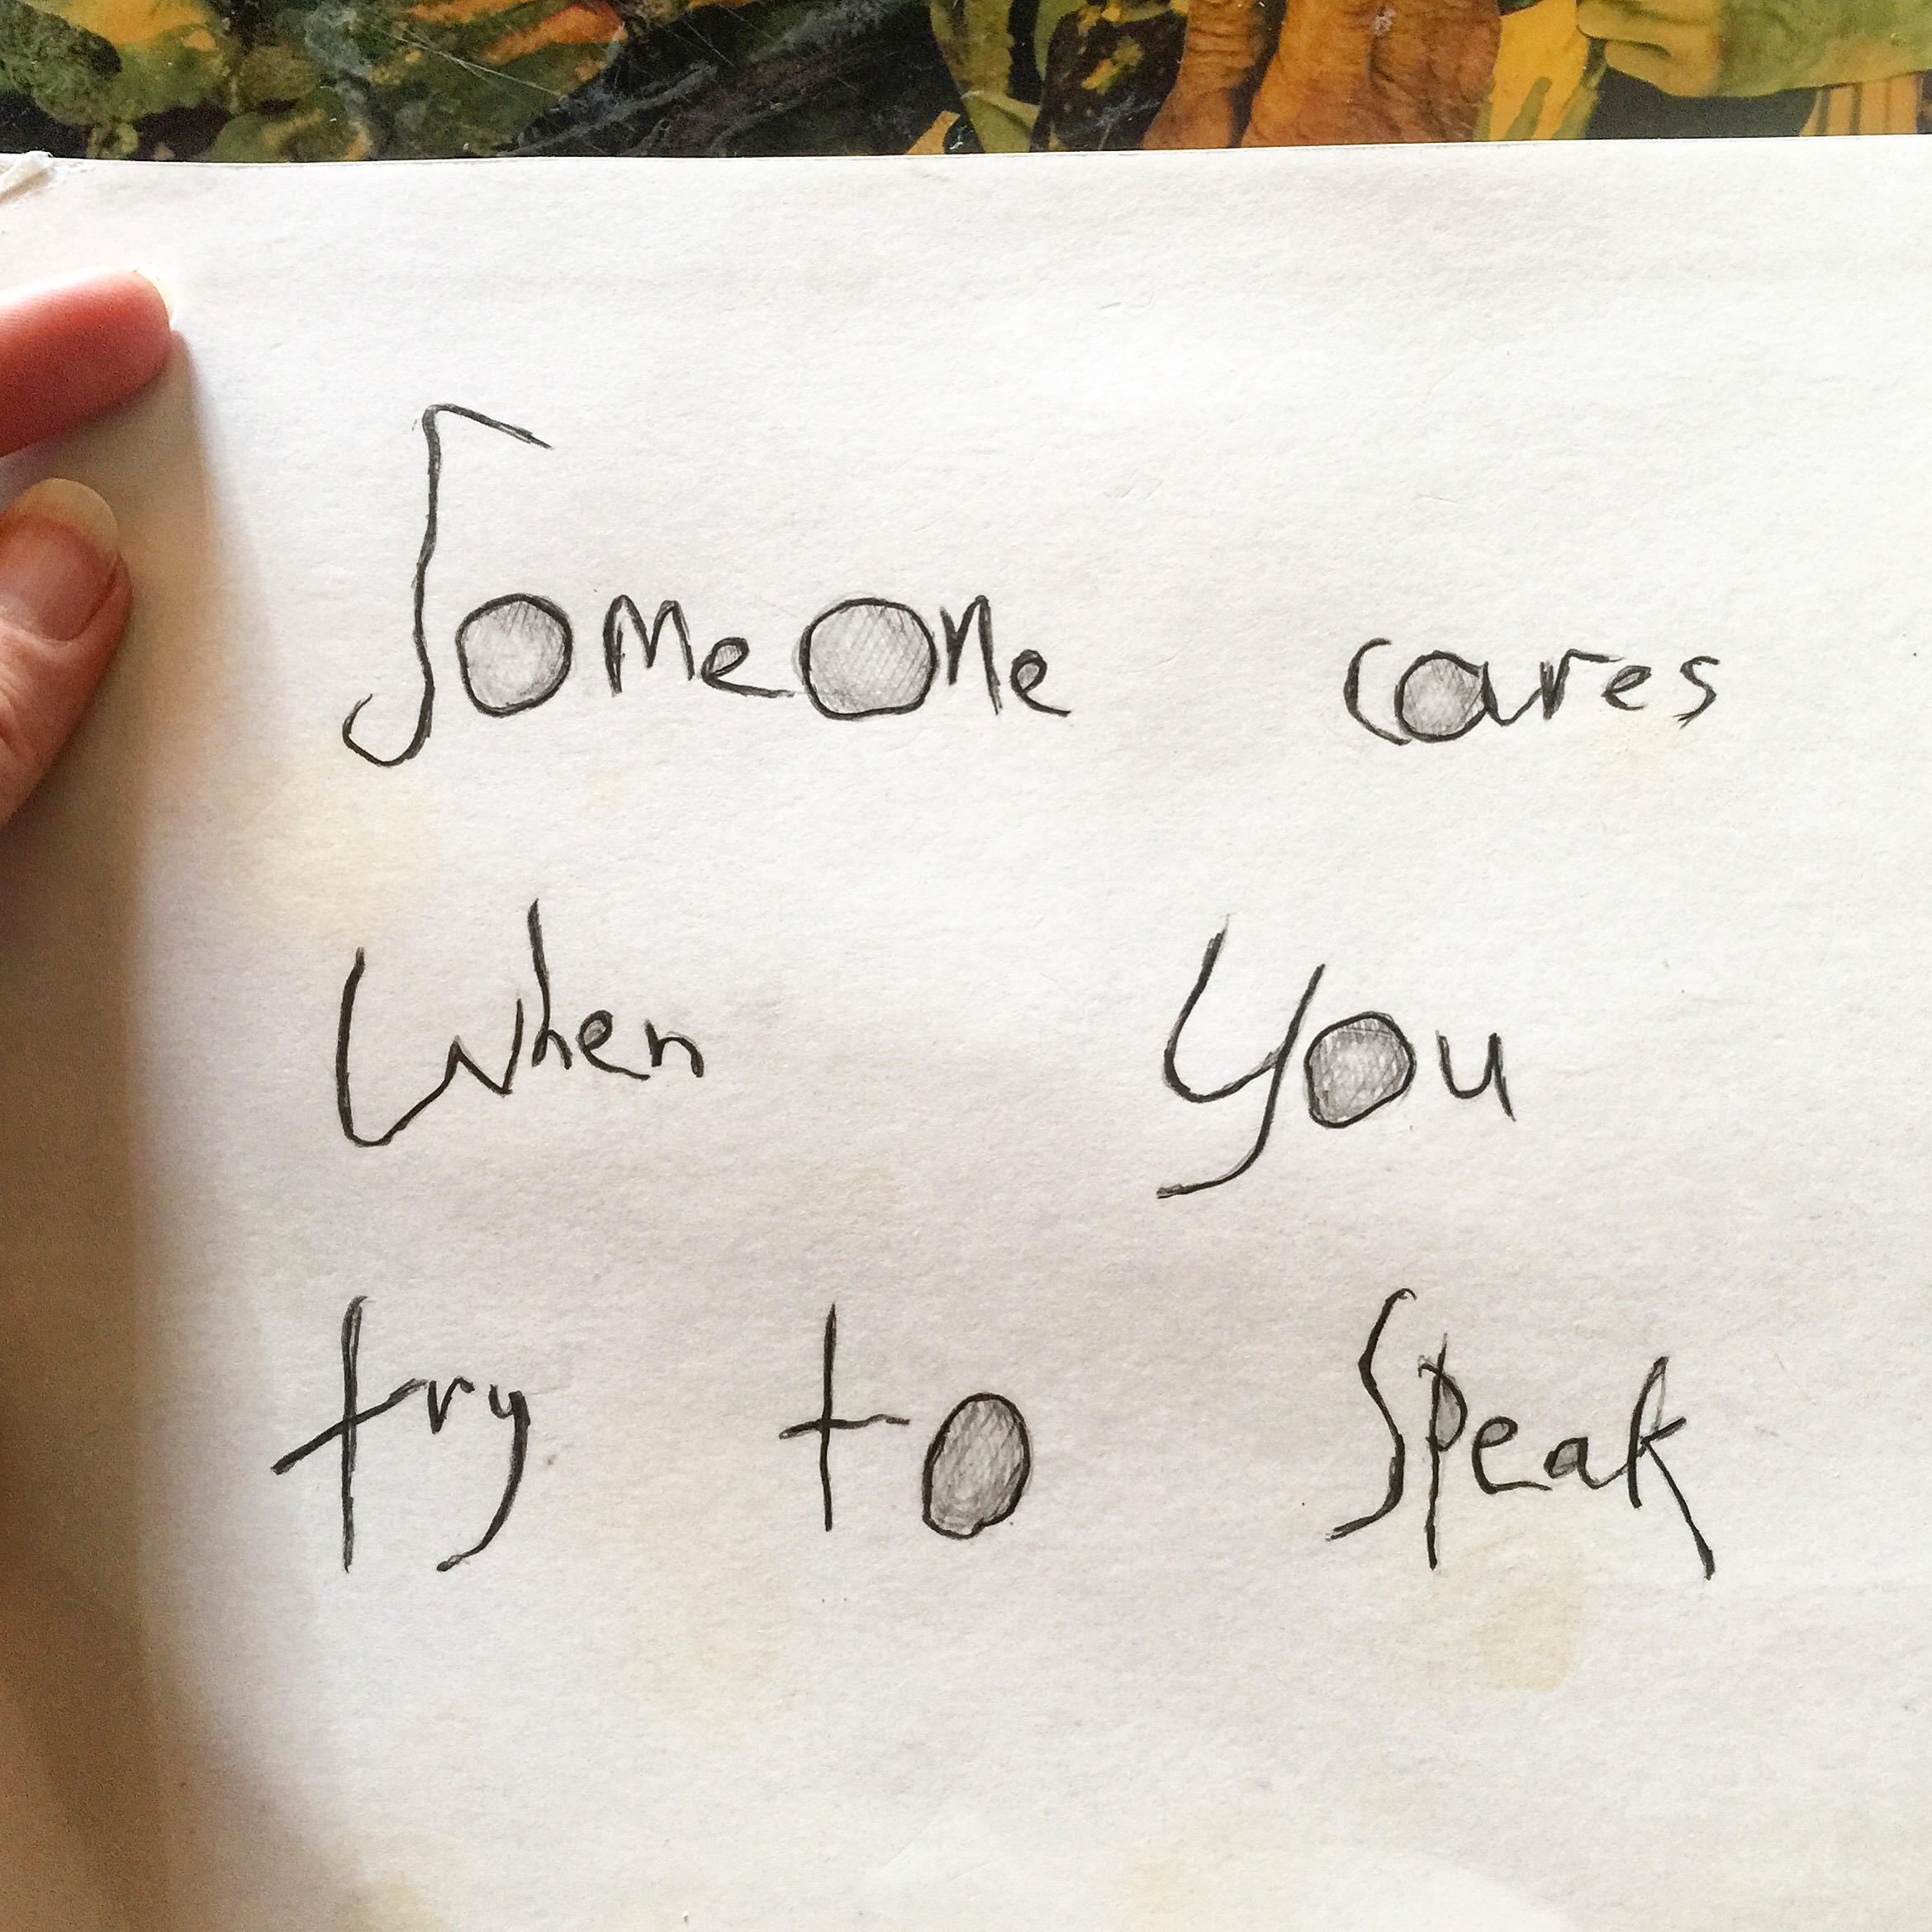 Someone cares
When you
try to Speak